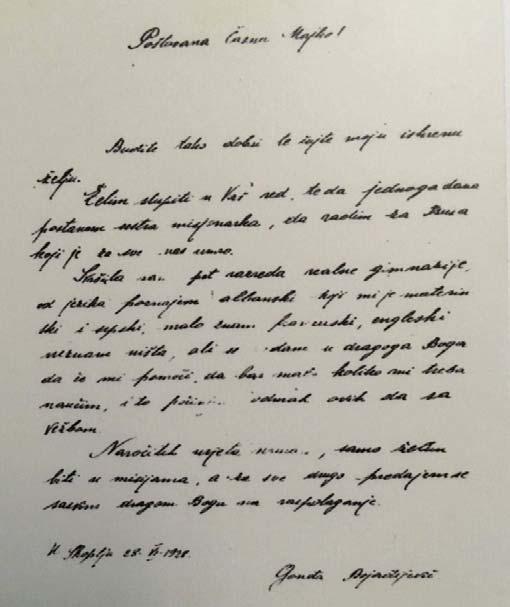 Poštovana Časna Majko!
Budite tako dobri te čujte moju iskrenu
želju.
Želim stupiti u Vaš red, te da jednoga dana
postanem sestra misjonarka, da radim za Isusa
koji je za sve nas umro.
Svršila sam pet razreda realne gimnazije,
od jezika poznajem albanski koji mi je materin
ski i srpski, malo znam francuski, engleski
neznam ništa, ali se nadam u dragoga Boga
da će mi pomoći da bar malo koliko mi treba
naučim, i to odmah ovih da sa
vežbam.
Naročitih uvjeta nemam, samo želim
biti u misijama, a za sve drugo predajem se
sasvim dragom Bogu na raspolaganje.
U Skoplju 28. VI. 1928.
Gonđa Bojadžijević